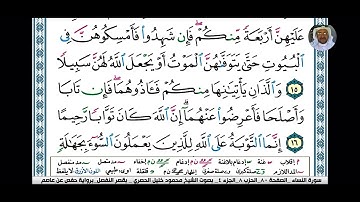 عَلَيْهِنَّ أَرْبَعَةً مِّنكُمْ ۖ فَإِن شَهِدُوا۟ فَأَمْسِكُوهُنَّ فِى
ٱلْبُيُوتِ حَتَّىٰ يَتَوَفَّىٰهُنَّ ٱلْمَوْتُ أَوْ يَجْعَلَ ٱللَّهُ لَهُنَّ سَبِيلًا
١٥ وَٱلَّذَانِ يَأْتِيَـٰنِهَا مِنكُمْ فَـَٔاذُوهُمَا ۖ فَإِن تَابَا
وَأَصْلَحَا فَأَعْرِضُوا۟ عَنْهُمَآ ۗ إِنَّ ٱللَّهَ كَانَ تَوَّابًا رَّحِيمًا
١٦ إِنَّمَا ٱلتَّوْبَةُ عَلَى ٱللَّهِ لِلَّذِينَ يَعْمَلُونَ ٱلسُّوٓءَ بِجَهَـٰلَةٍ
سورة النساء - الصفحة ٨٠ - الجزء ٤ - بصوت الشيخ محمود خليل الحصري - بقصر المنفصل برواية حفص عن عاصم